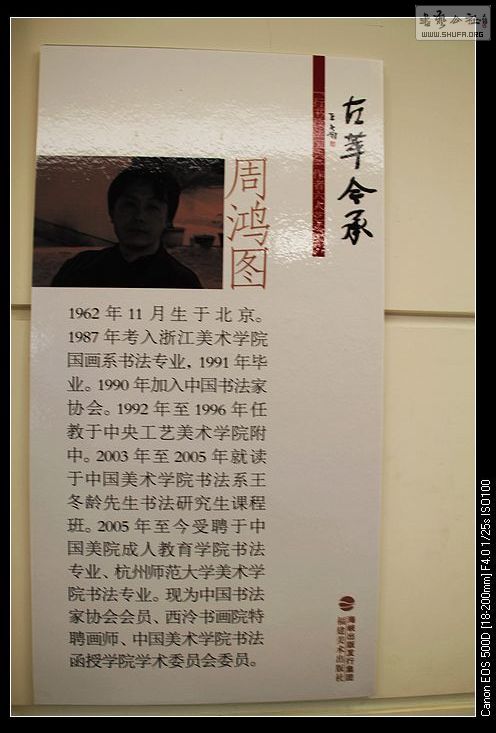 書藝公社
WWW.SHUFA.ORG
古萃今承
周鸿图
1962 年 11 月生于北京。
1987 年考入浙江美术学院
国画系书法专业，1991 年毕
业。1990 年加入中国书法家
协会。1992 年至 1996 年任
教于中央工艺美术学院附
中。2003 年至 2005 年就读
于中国美术学院书法系王
冬龄先生书法研究生课程
班。2005 年至今受聘于中
国美院成人教育学院书法
专业、杭州师范大学美术学
院书法专业。现为中国书法
家协会会员、西泠书画院特
聘画师、中国美术学院书法
函授学院学术委员会委员。
海峡出版发行集团
福建美术出版社
Canon EOS 500D [18-200mm] F4.0 1/25s ISO100